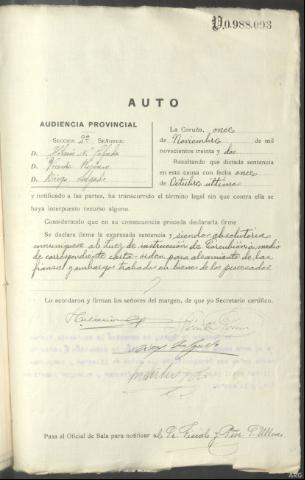 V.0.988.093
AUTO
AUDIENCIA PROVINCIAL
SECCIÓN 2ª SEÑORES:
D.
D. Vicente
D. Diego Salgado
La Coruña, once
de Noviembre de mil
novecientos treinta y dos
Resultando que dictada sentencia
en esta causa con fecha once
de Octubre último
y notificado a las partes, ha transcurrido el término legal sin que contra ella se
haya interpuesto recurso alguno.
Considerando que en su consecuencia procede declararla firme
Se declara firme la expresada sentencia y siendo absolutoria
comuníquese al Juez de instrucción de Corcubión, medio
de correspondiente carta-orden para alzamiento de las
fianzas y embargo trabado en bienes de los procesados
Lo acordaron y firman los señores del margen, de que yo Secretario certifico.
Diego Salgado
Pasa al Oficial de Sala para notificar al Sr Fiscal y Pror P. Ulloa
ARG